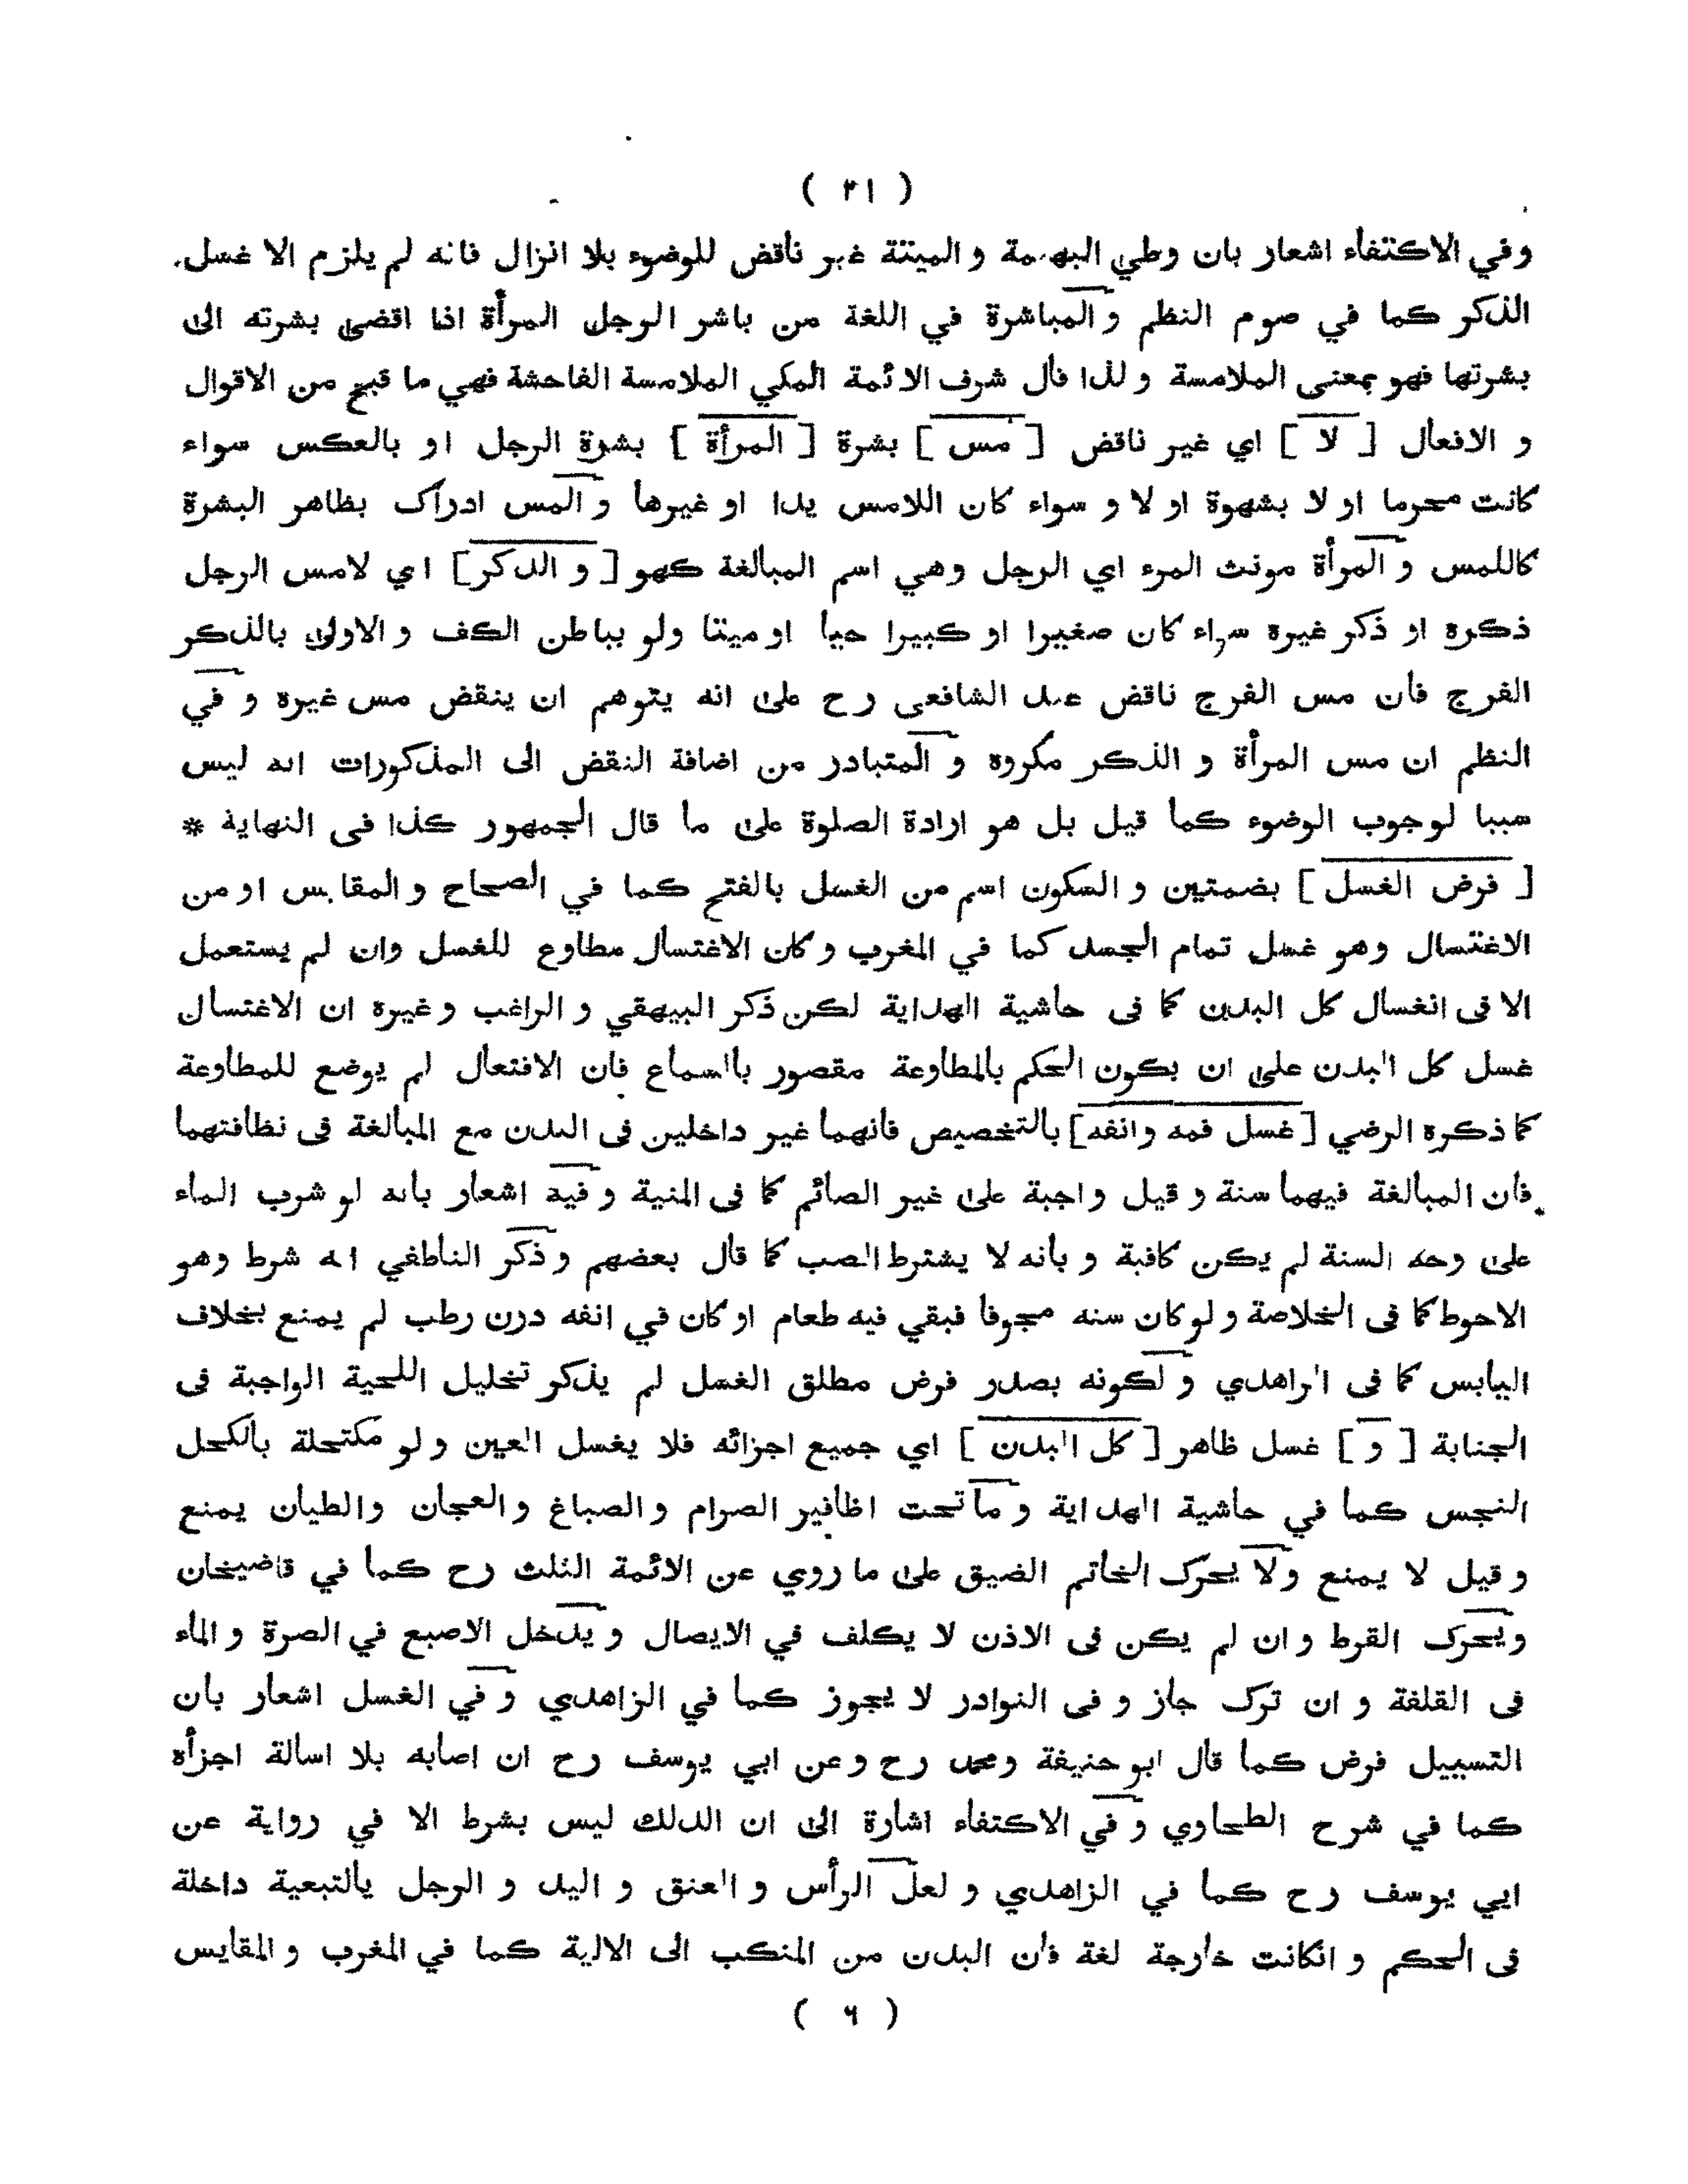 ( ٢١ )
وفي الاكتفاء اشعار بان وطي البهيمة و الميتة غير ناقض للوضوء بلا انزال فانه لم يلزم الا غسل
الذكر كما في صوم النظم و المباشرة في اللغة من باشر الرجل المرأة اذا افضى بشرته الى
بشرتها فهو بمعنى الملامسة و لذا قال شرف الائمة المكي الملامسة الفاحشة فهي ما قبح من الاقوال
و الافعال [ لا ] اي غير ناقض [ مس ] بشرة [ المرأة ] بشرة الرجل او بالعكس سواء
كانت محرما او لا بشهوة او لا و سواء كان اللامس يدا او غيرها و المس ادراك بظاهر البشرة
كاللمس و المرأة مونث المرء اي الرجل وهي اسم المبالغة كهو [ و الذكر ] اي لامس الرجل
ذكره او ذكر غيره سواء كان صغيرا او كبيرا حيا او ميتا ولو بباطن الكف و الاولى بالذكر
الفرج فان مس الفرج ناقض عند الشافعي رح على انه يتوهم ان ينقض مس غيره و في
النظم ان مس المرأة و الذكر مكروه و المتبادر من اضافة النقض الى المذكورات انه ليس
سببا لوجوب الوضوء كما قيل بل هو ارادة الصلوة على ما قال الجمهور كذا فى النهاية *
[ فرض الغسل ] بضمتين و السكون اسم من الغسل بالفتح كما في الصحاح و المقايس او من
الاغتسال وهو غسل تمام الجسد كما في المغرب و كان الاغتسال مطاوع للغسل وان لم يستعمل
الا فى انغسال كل البدن كما فى حاشية الهداية لكن ذكر البيهقي و الراغب و غيره ان الاغتسال
غسل كل البدن على ان يكون الحكم بالمطاوعة مقصور بالسماع فان الافتعال لم يوضع للمطاوعة
كما ذكره الرضي [ غسل فمه وانفه ] بالتخصيص فانهما غير داخلين فى البدن مع المبالغة فى نظافتهما
فان المبالغة فيهما سنة و قيل واجبة على غير الصائم كما فى المنية و فيه اشعار بانه لو شرب الماء
على وجه السنة لم يكن كافية و بانه لا يشترط الصب كما قال بعضهم و ذكر الناطفي انه شرط وهو
الاحوط كما فى الخلاصة و لو كان سنه مجوفا فبقي فيه طعام او كان في انفه درن رطب لم يمنع بخلاف
اليابس كما فى الزاهدي و لكونه بصدر فرض مطلق الغسل لم يذكر تخليل اللحية الواجبة فى
الجنابة [ و ] غسل ظاهر [ كل البدن ] اي جميع اجزائه فلا يغسل العين و لو مكتحلة بالكحل
النجس كما في حاشية الهداية و ما تحت اظافير الصرام و الصباغ والعجان والطيان يمنع
و قيل لا يمنع ولا يحرك الخاتم الضيق على ما روي عن الائمة الثلث رح كما في قاضيخان
ويحرك القرط و ان لم يكن فى الاذن لا يكلف في الايصال و يدخل الاصبع في الصرة و الماء
فى القلفة و ان ترك جاز و فى النوادر لا يجوز كما في الزاهدي و في الغسل اشعار بان
التسييل فرض كما قال ابو حنيفة ومحمد رح و عن ابي يوسف رح ان اصابه بلا اسالة اجزأه
كما في شرح الطحاوي و في الاكتفاء اشارة الى ان الدلك ليس بشرط الا في رواية عن
ابي يوسف رح كما في الزاهدي و لعل الرأس و العنق و اليد و الرجل بالتبعية داخلة
فى الحكم و انكانت خارجة لغة فان البدن من المنكب الى الالية كما في المغرب و المقايس
( ٦ )